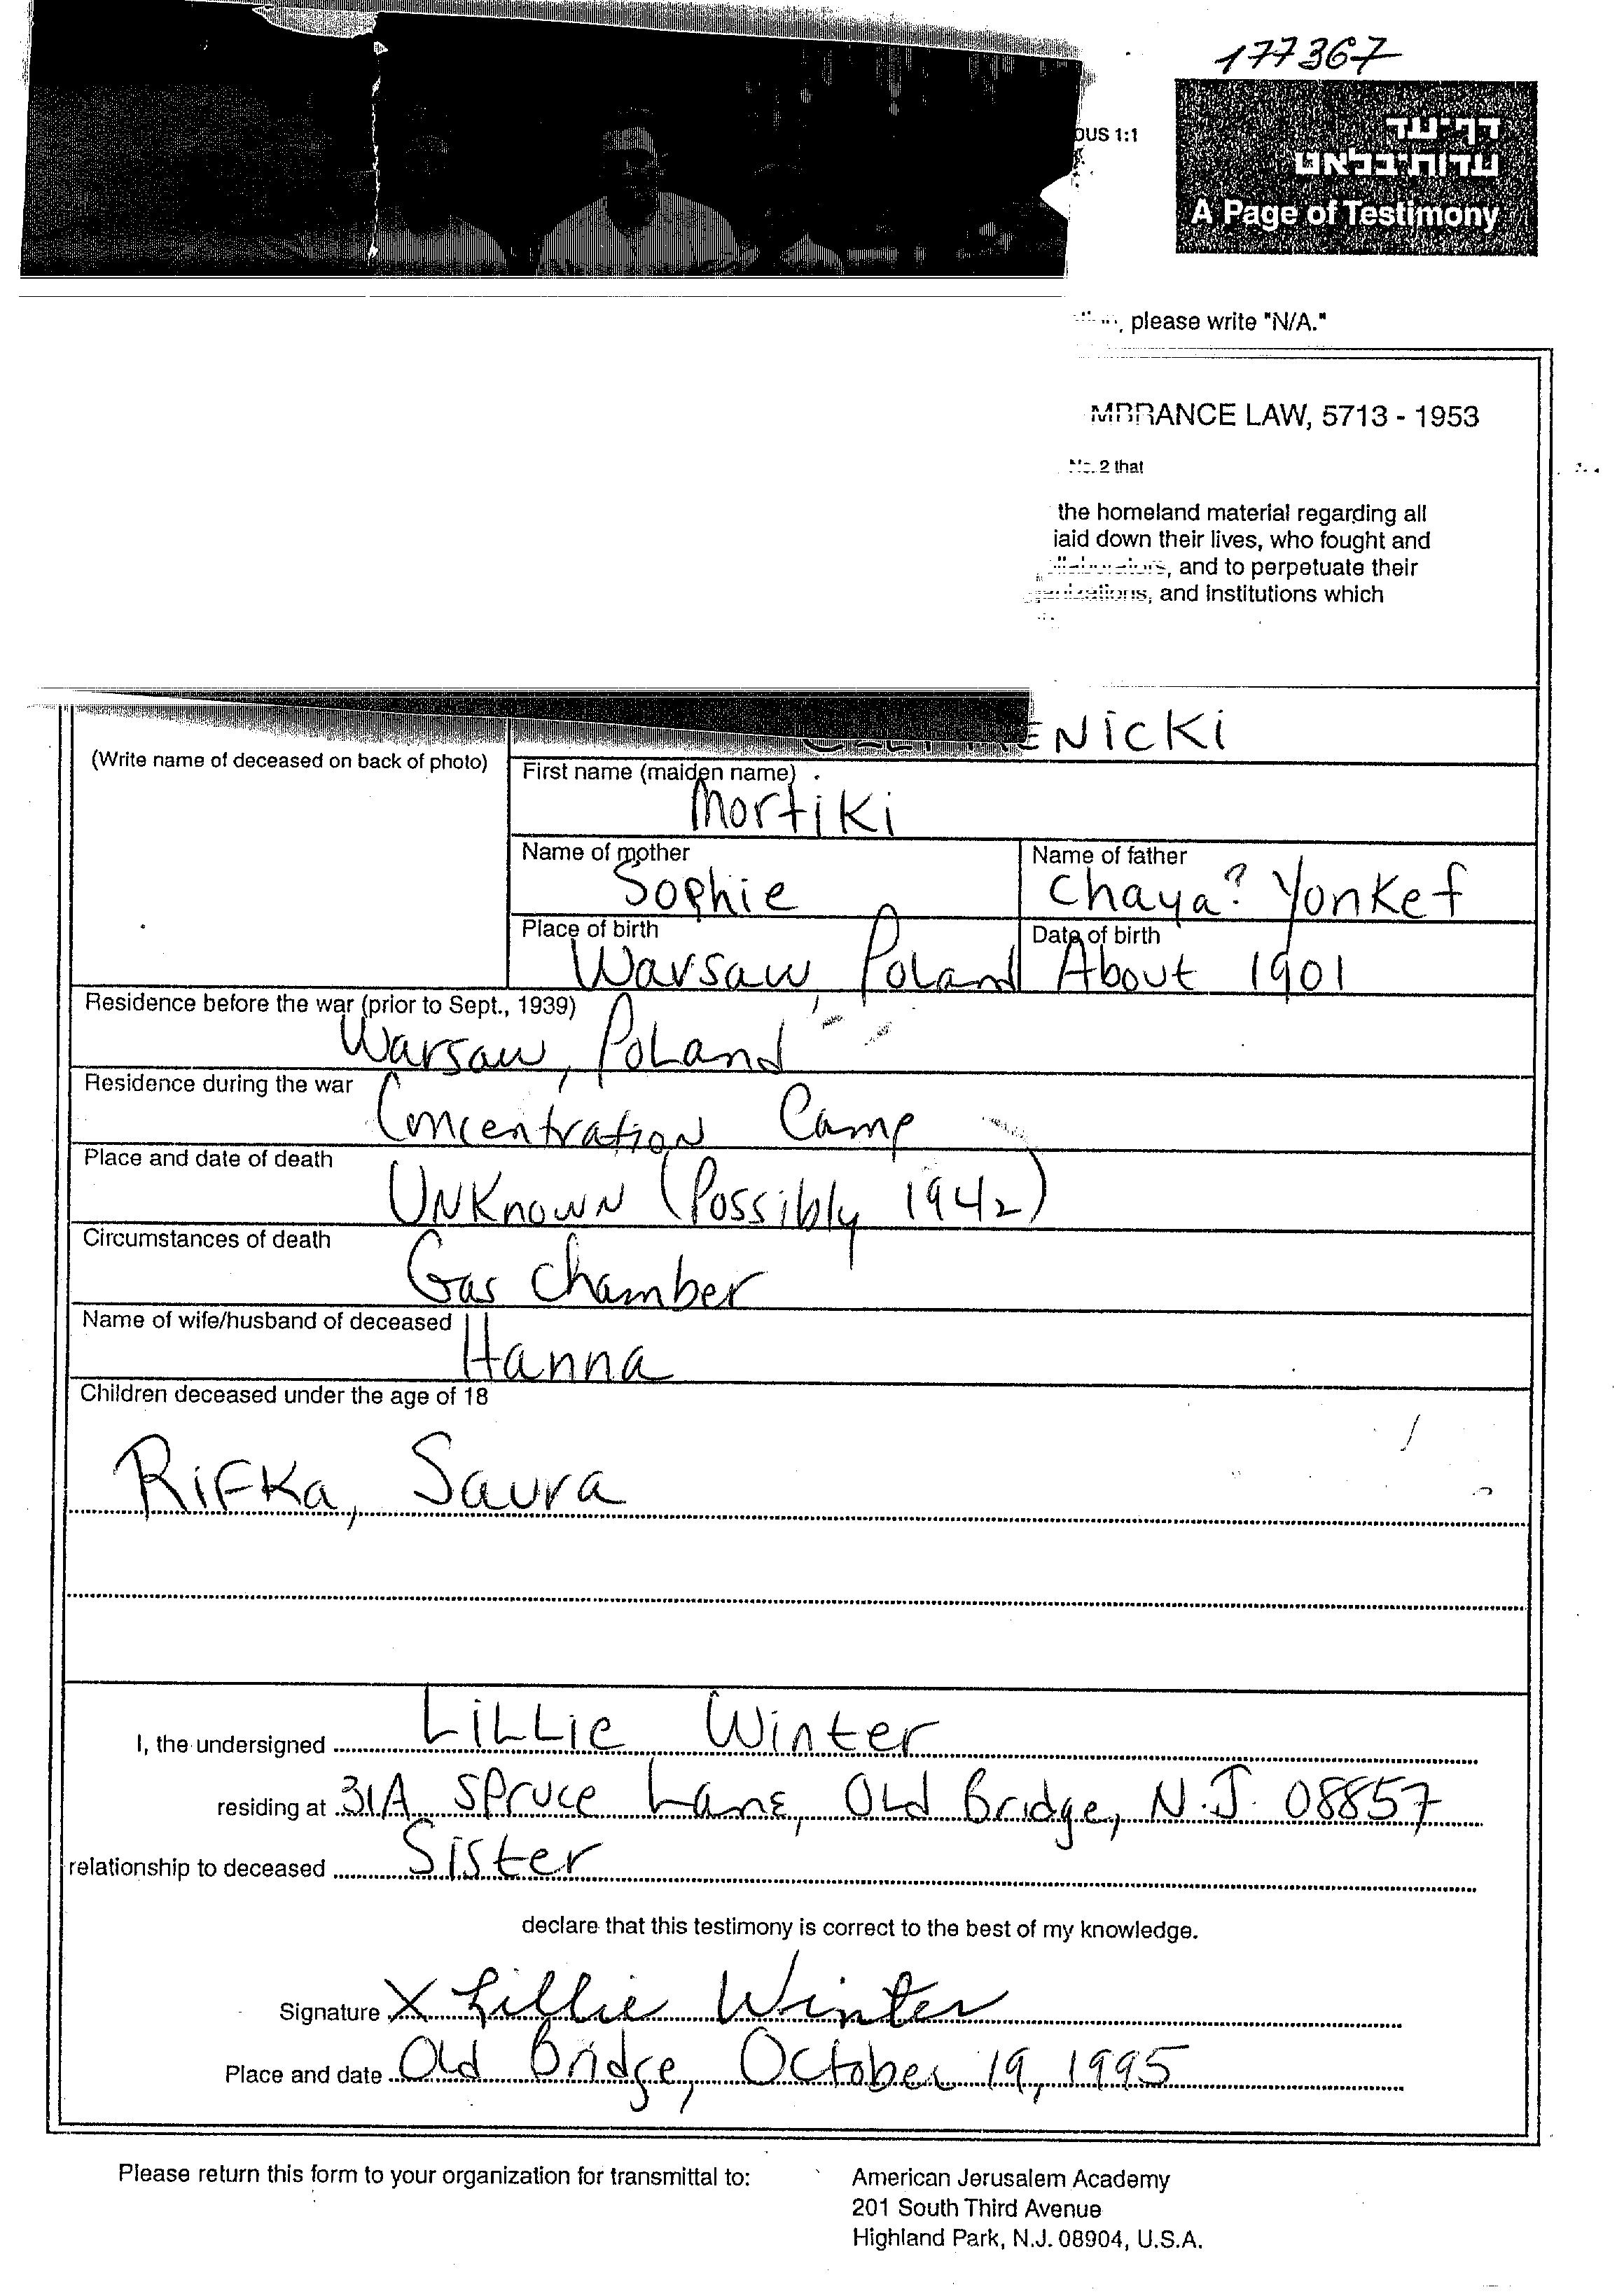 177367
דף-עד
עדות-בלאט
A Page of Testimony
OUS 1:1
please write "N/A."
LAW, 5713 - 1953
2 that
the homeland material regarding all
laid down their lives, who fought and
and to perpetuate their
and institutions which
ENICKI
(Write name of deceased on back of photo)
First name (maiden name)
Mortiki
Name of mother
Sophie
Name of father
Chaya? Yonkef
Place of birth
Warsaw, Poland
Date of birth
About 1901
Residence before the war (prior to Sept., 1939)
Warsaw, Poland
Residence during the war
Concentration Camp
Place and date of death
Unknown (Possibly 1942)
Circumstances of death
Gas Chamber
Name of wife/husband of deceased
Hanna
Children deceased under the age of 18
Rifka, Saura
I, the undersigned Lillie Winter
residing at 31A Spruce Lane, Old Bridge, N.J. 08857
relationship to deceased Sister
declare that this testimony is correct to the best of my knowledge.
Signature X Lillie Winter
Place and date Old Bridge, October 19, 1995
Please return this form to your organization for transmittal to:
American Jerusalem Academy
201 South Third Avenue
Highland Park, N.J. 08904, U.S.A.